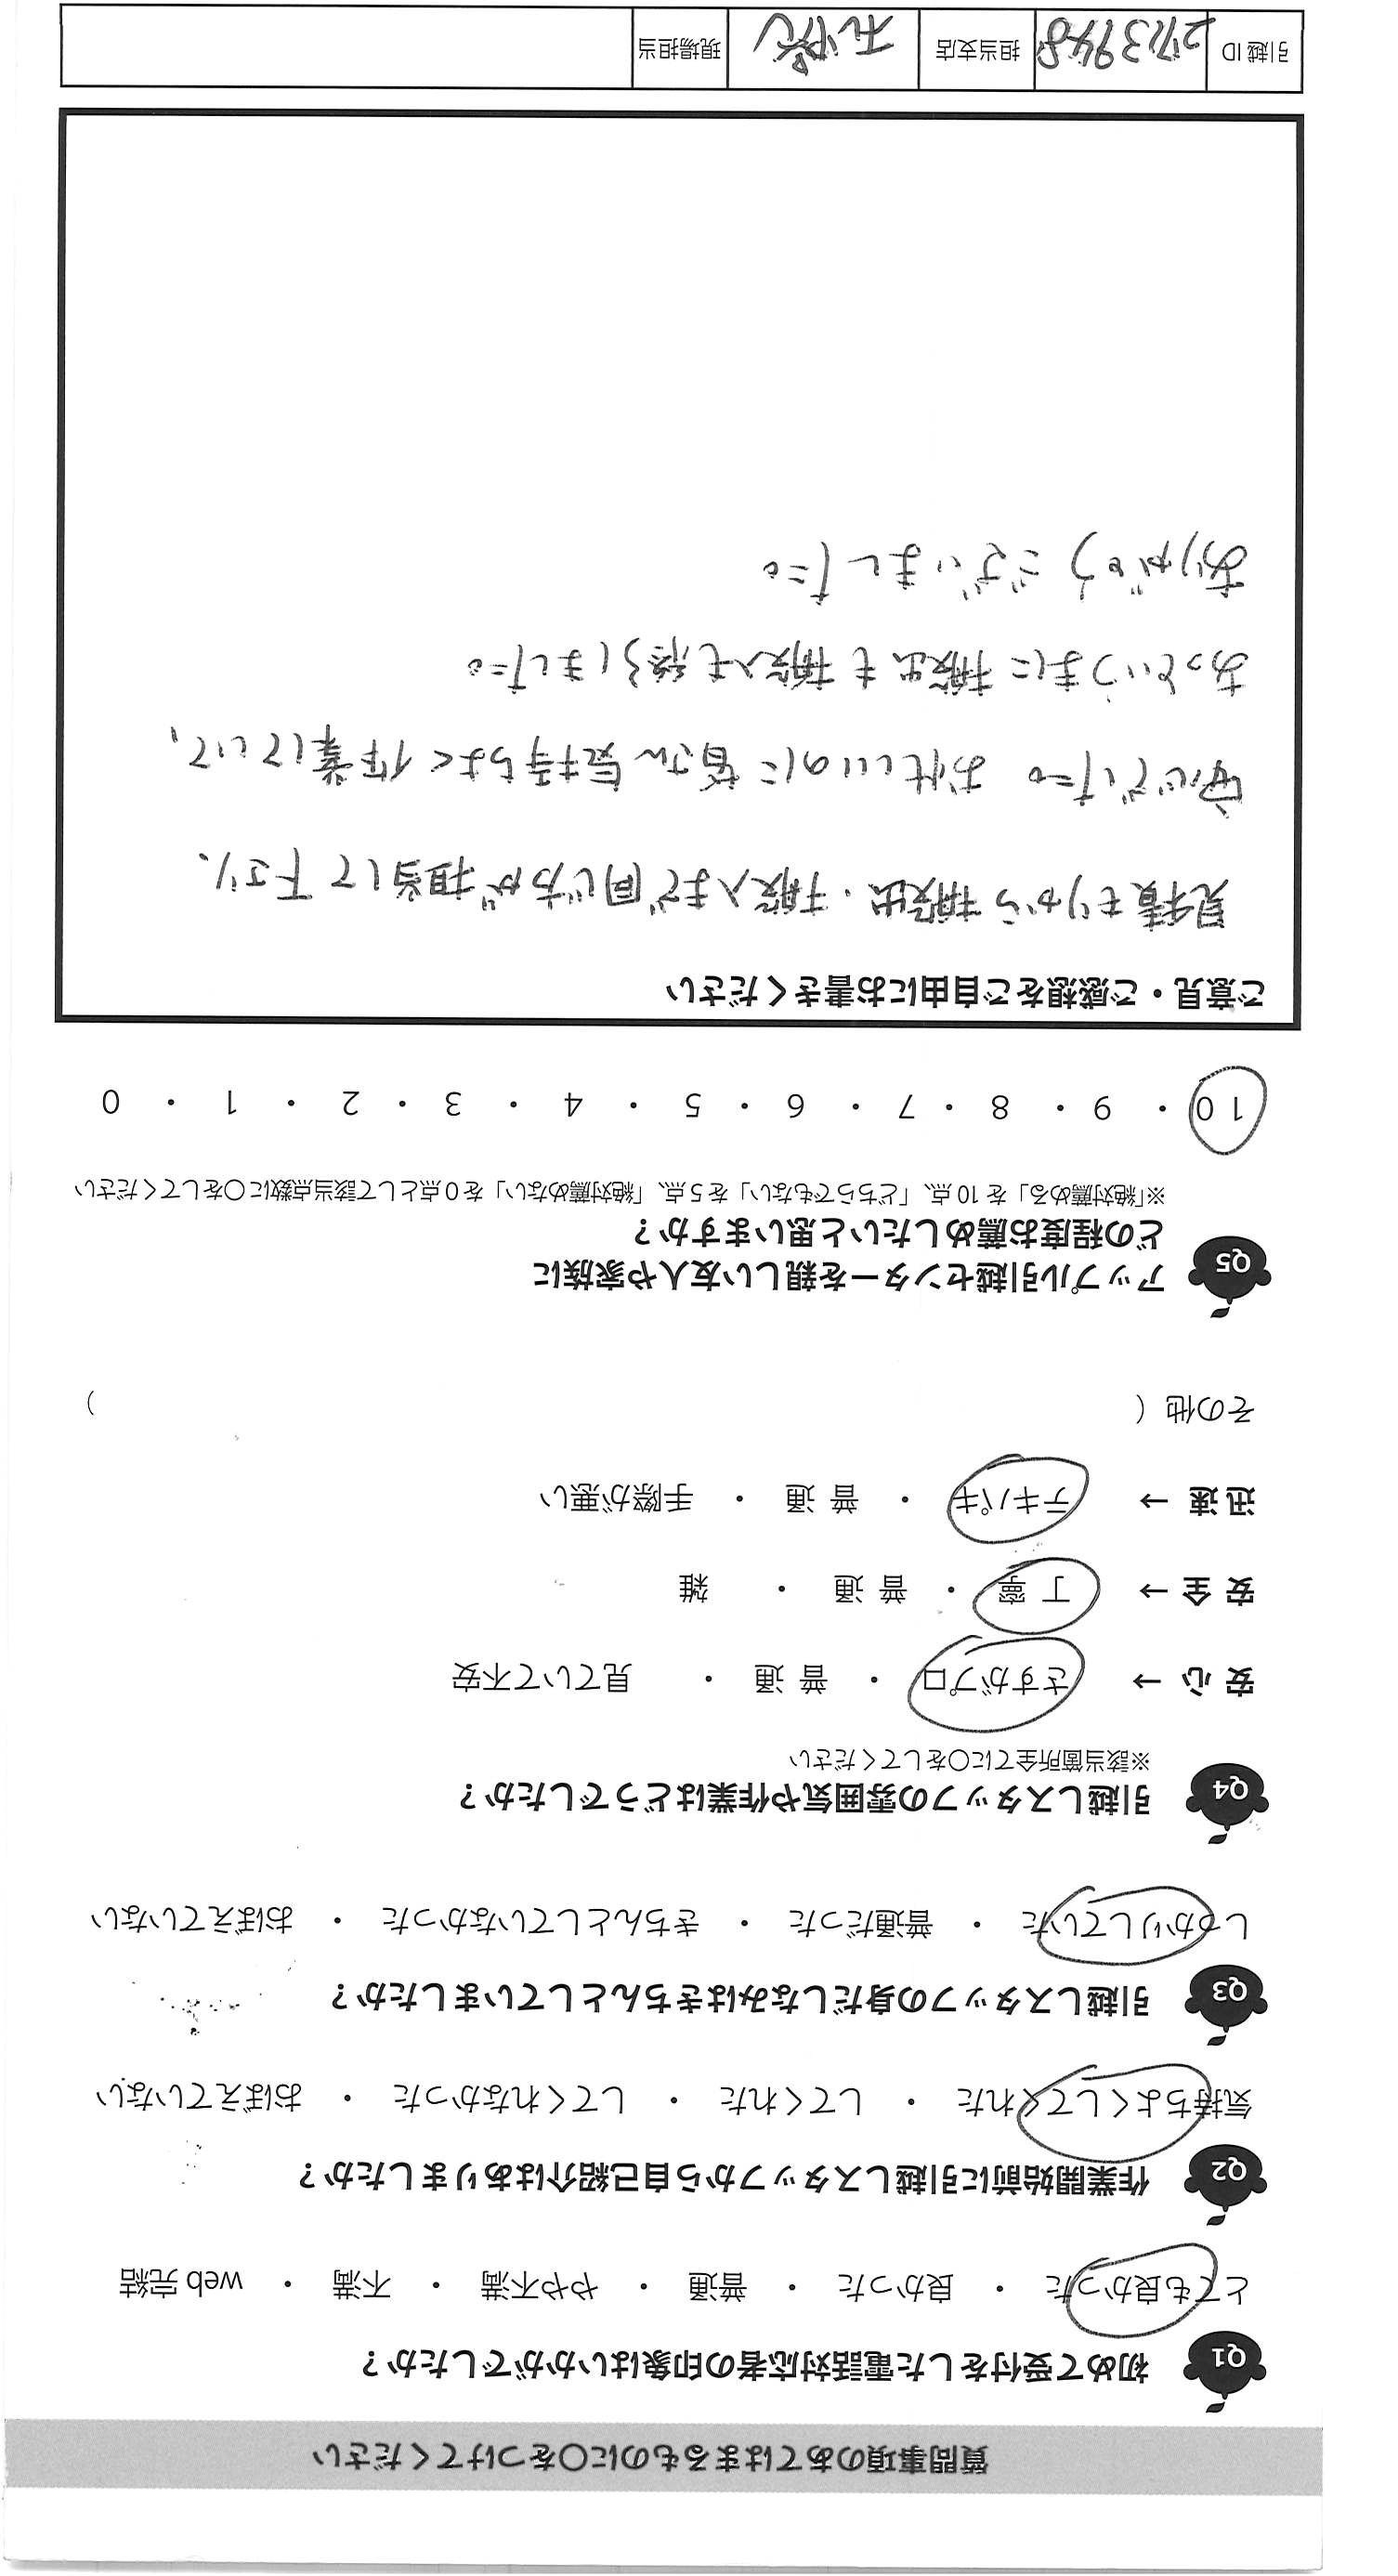 質問事項のあてはまるものに○をつけてください
Q1 初めて受付をした電話対応者の印象はいかがでしたか?
とても良かった ・ 良かった ・ 普通 ・ やや不満 ・ 不満 ・ web 完結
Q2 作業開始前に引越しスタッフから自己紹介はありましたか?
気持ちよくしてくれた ・ してくれた ・ してくれなかった ・ おぼえていない
Q3 引越しスタッフの身だしなみはきちんとしていましたか?
しっかりしていた ・ 普通だった ・ きちんとしていなかった ・ おぼえていない
Q4 引越しスタッフの雰囲気や作業はどうでしたか?
※該当箇所全てに○をしてください
安 心 → さすがプロ ・ 普 通 ・ 見ていて不安
安 全 → 丁 寧 ・ 普 通 ・ 雑
迅 速 → テキパキ ・ 普 通 ・ 手際が悪い
その他 ( )
Q5 アップル引越センターを親しい友人や家族に
どの程度お薦めしたいと思いますか?
※「絶対薦める」を 10 点、「どちらでもない」を 5 点、「絶対薦めない」を 0 点として該当点数に○をしてください
10 ・ 9 ・ 8 ・ 7 ・ 6 ・ 5 ・ 4 ・ 3 ・ 2 ・ 1 ・ 0
ご意見・ご感想をご自由にお書きください
見積もりから搬出・搬入まで同じ方が担当して下さり、
安心でした。お忙しいのに皆さん気持ちよく作業していて、
あっというまに搬出も搬入も終了しました。
ありがとうございました。
引越 ID 2713948 担当支店 札幌 現場担当